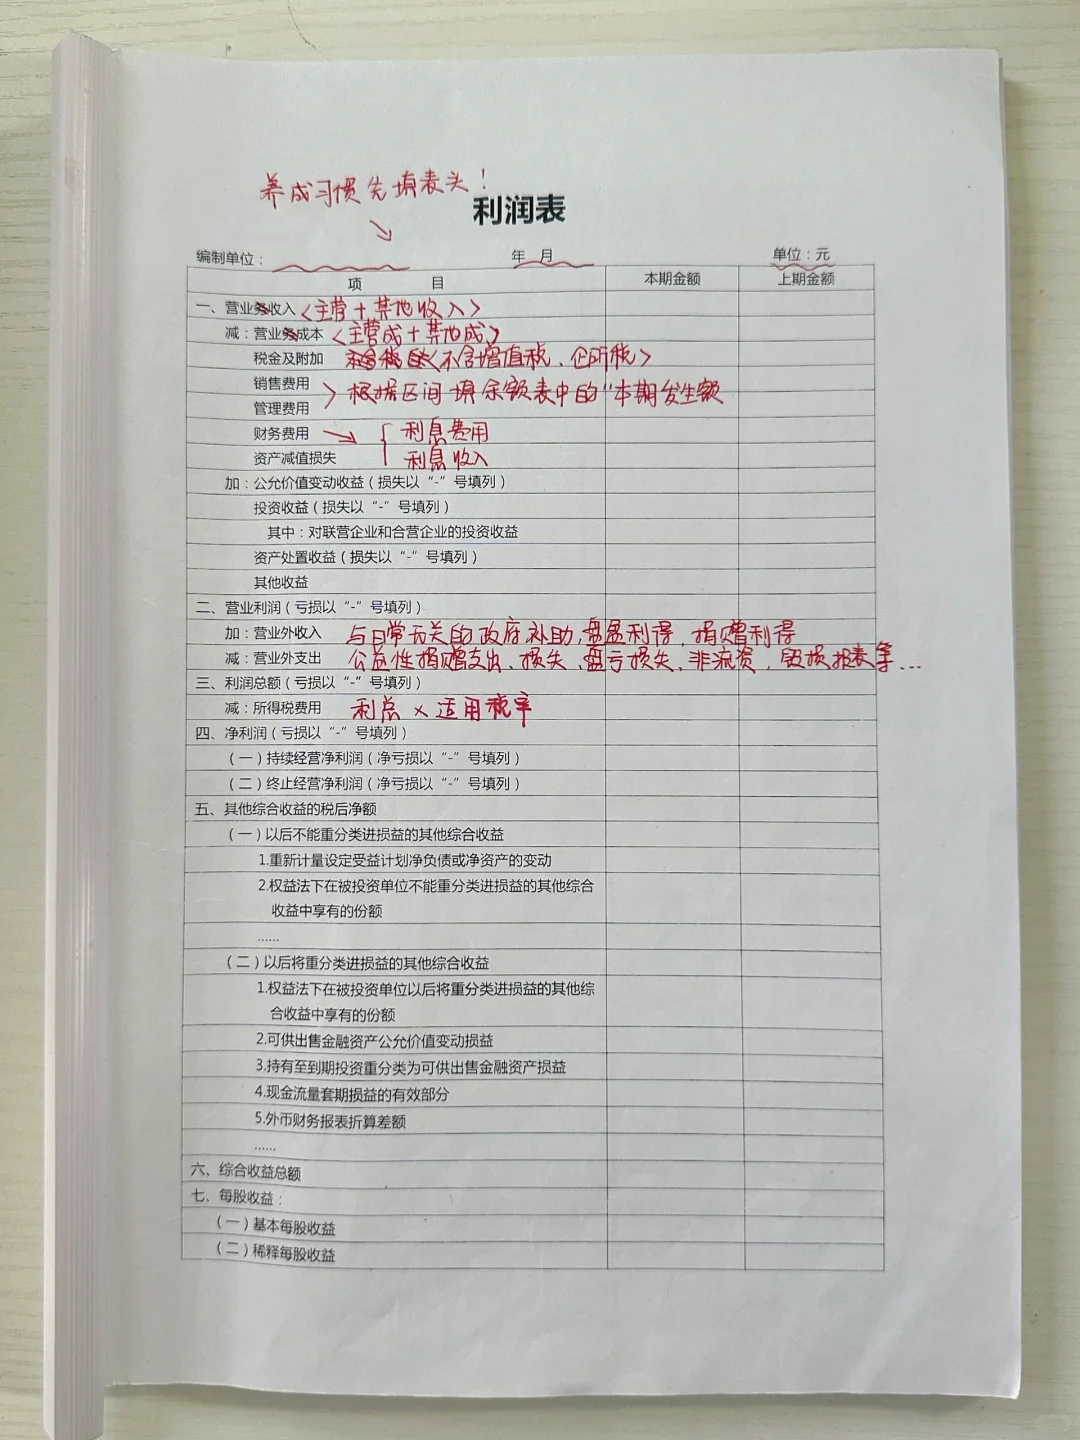 养成习惯先填表头！
利润表
编制单位： 年 月 单位：元
项 目 本期金额 上期金额
一、营业务收入 <主营+其他收入>
减：营业务成本 <主营成+其他成>
税金及附加 <不含增值税、企所税>
销售费用
管理费用 > 根据区间填余额表中的"本期发生额
财务费用 → { 利息费用
资产减值损失 利息收入
加：公允价值变动收益（损失以“-”号填列）
投资收益（损失以“-”号填列）
其中：对联营企业和合营企业的投资收益
资产处置收益（损失以“-”号填列）
其他收益
二、营业利润（亏损以“-”号填列）
加：营业外收入 与日常无关的政府补助,盘盈利得,捐赠利得
减：营业外支出 公益性捐赠支出、损失、盘亏损失、非流资,毁损报表等...
三、利润总额（亏损以“-”号填列）
减：所得税费用 利总×适用税率
四、净利润（亏损以“-”号填列）
（一）持续经营净利润（净亏损以“-”号填列）
（二）终止经营净利润（净亏损以“-”号填列）
五、其他综合收益的税后净额
（一）以后不能重分类进损益的其他综合收益
1.重新计量设定受益计划净负债或净资产的变动
2.权益法下在被投资单位不能重分类进损益的其他综合
收益中享有的份额
......
（二）以后将重分类进损益的其他综合收益
1.权益法下在被投资单位以后将重分类进损益的其他综
合收益中享有的份额
2.可供出售金融资产公允价值变动损益
3.持有至到期投资重分类为可供出售金融资产损益
4.现金流量套期损益的有效部分
5.外币财务报表折算差额
......
六、综合收益总额
七、每股收益：
（一）基本每股收益
（二）稀释每股收益